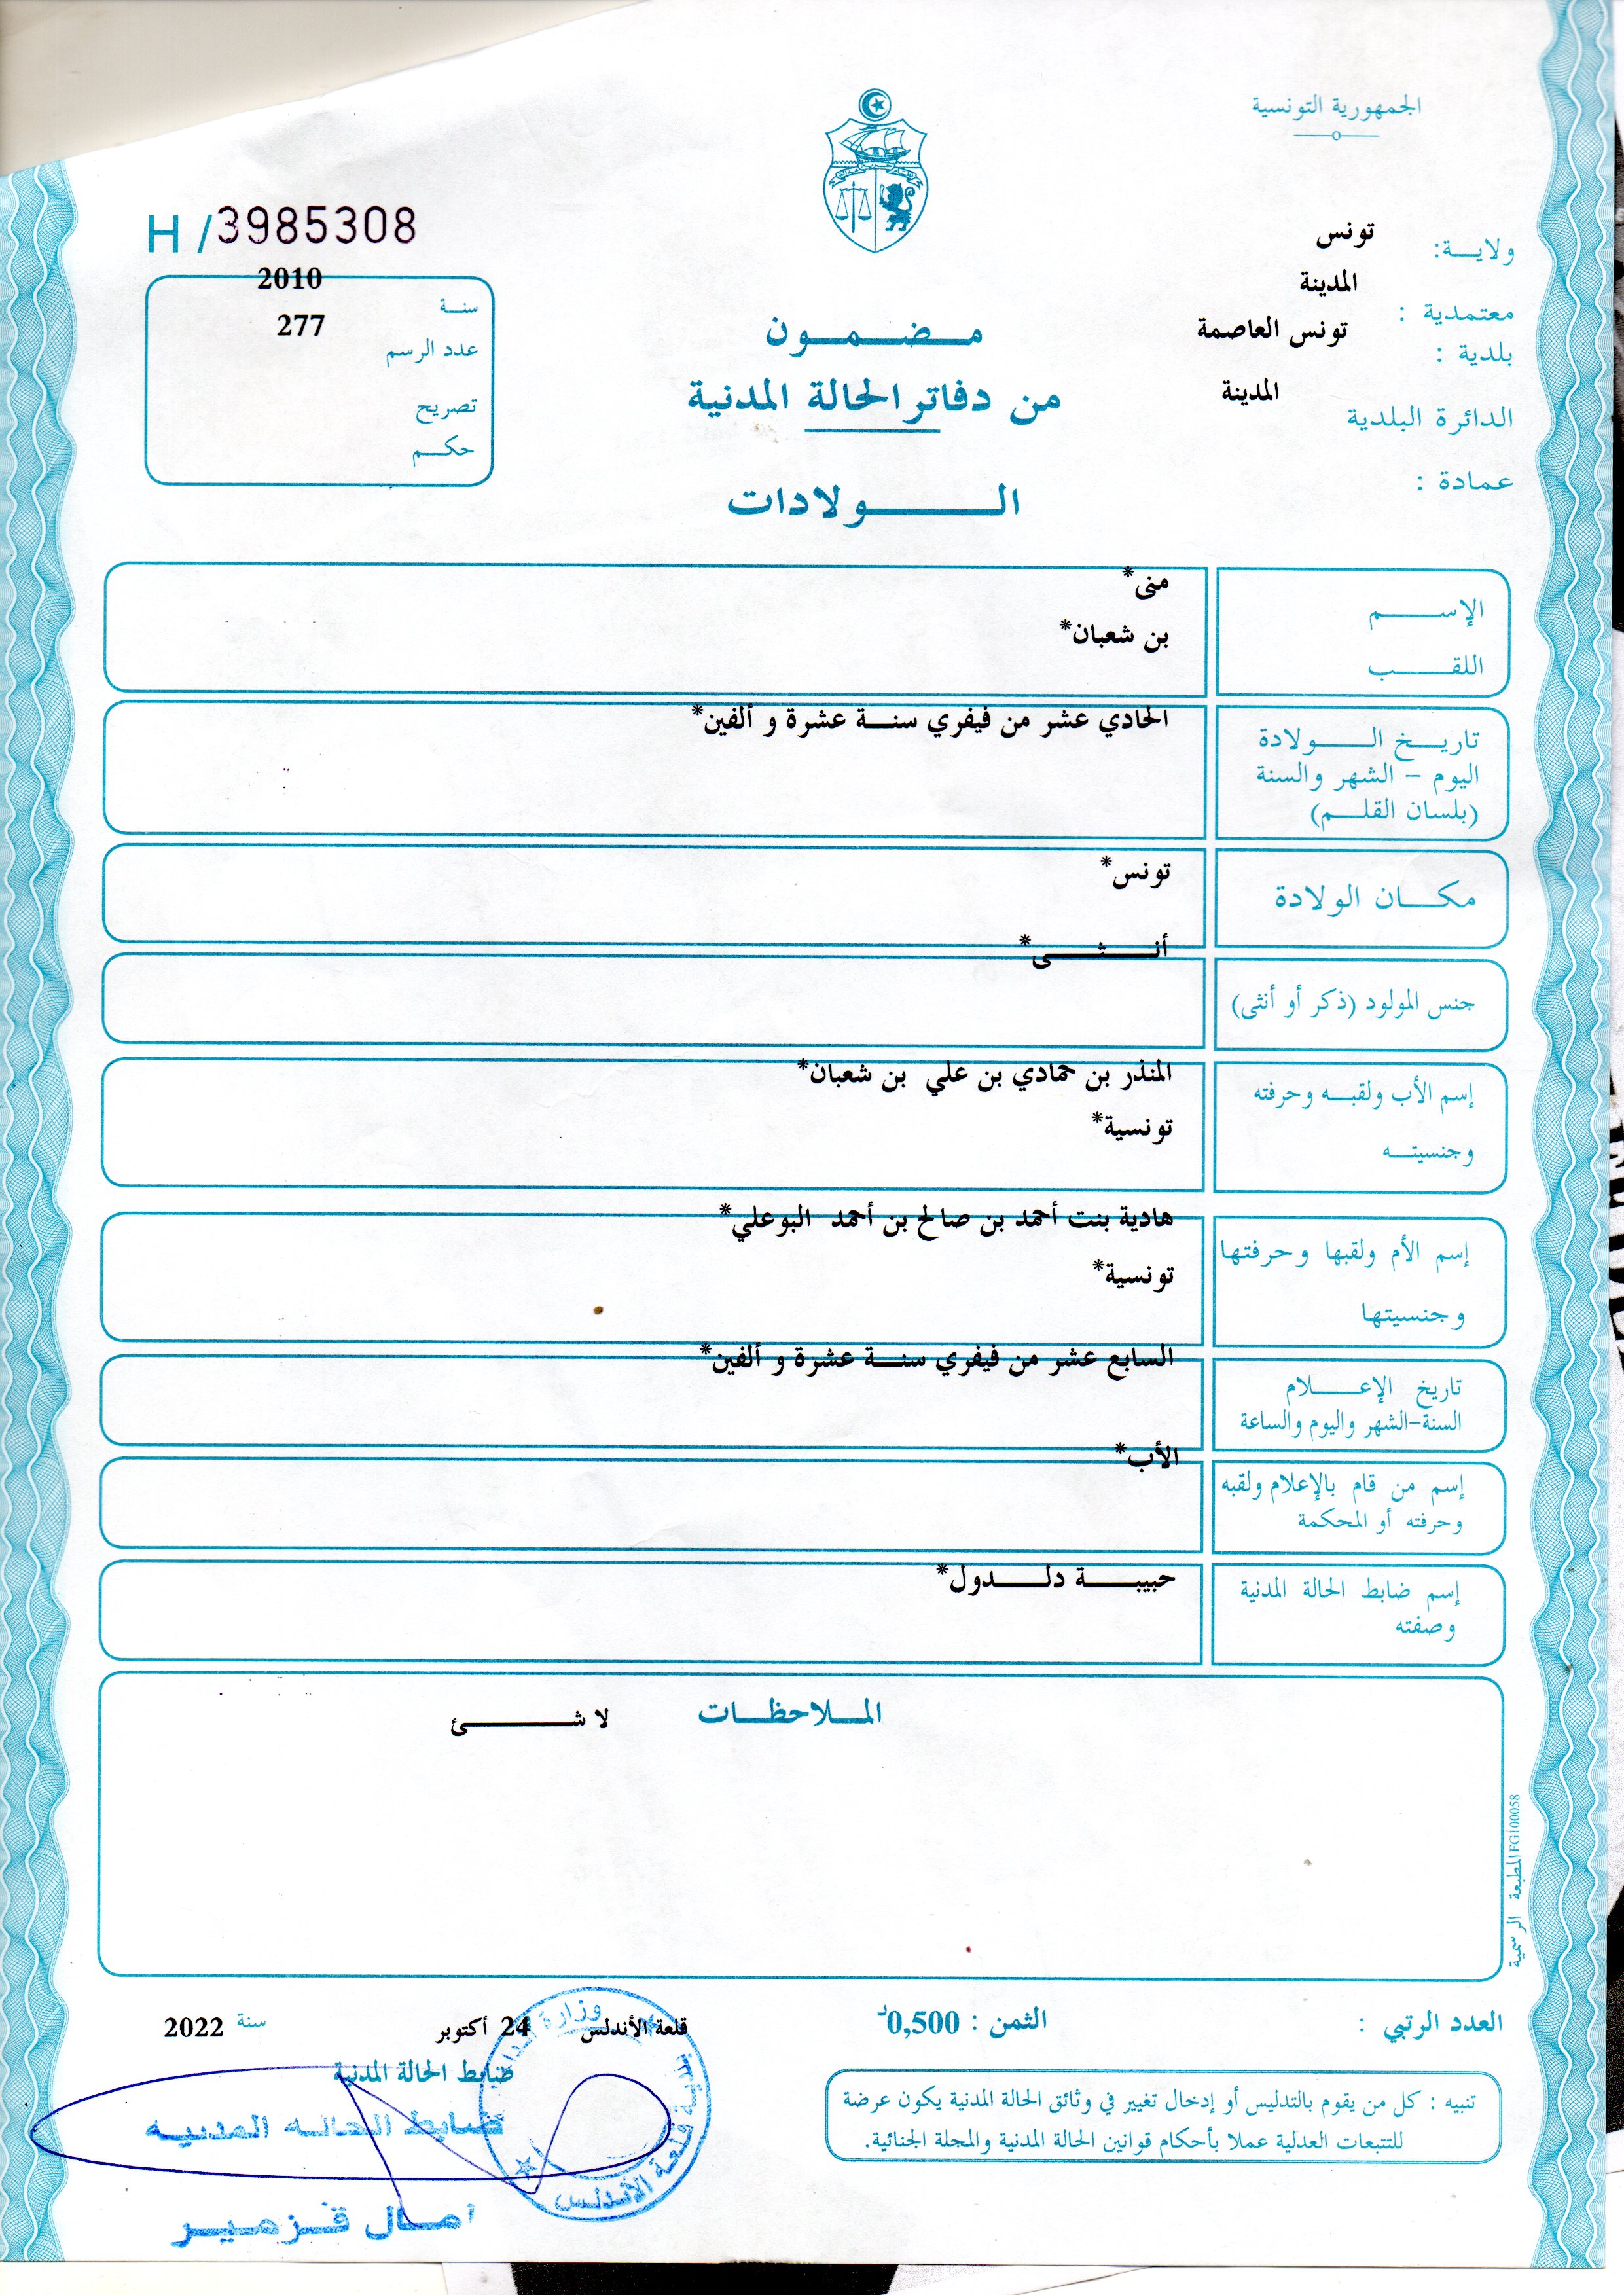 الجمهورية التونسية
H/3985308
ولايـــة: تونس
معتمدية : المدينة
بلدية : تونس العاصمة
الدائرة البلدية المدينة
عمادة :
سنـــة 2010
عدد الرسم 277
تصريح
حكـــم
مـــضـــمـــون
من دفاتر الحالة المدنية
الـــــولادات
الإســـــم منى*
اللقـــــب بن شعبان*
تاريـــخ الـــــولادة
اليوم – الشهر والسنة
(بلسان القلـــم)
الحادي عشر من فيفري سنـــة عشرة و ألفين*
مكـــان الولادة تونس*
جنس المولود (ذكر أو أنثى) أنـــثـــى*
إسم الأب ولقبـــه وحرفته المنذر بن حمادي بن علي بن شعبان*
وجنسيتـــه تونسية*
إسم الأم ولقبها وحرفتها هادية بنت أحمد بن صالح بن أحمد البوعلي*
وجنسيتها تونسية*
تاريخ الإعـــلام
السنة-الشهر واليوم والساعة
السابع عشر من فيفري سنـــة عشرة و ألفين*
إسم من قام بالإعلام ولقبه
وحرفته أو المحكمة
الأب*
إسم ضابط الحالة المدنية
وصفته
حبيبـــة دلـــدول*
المـــلاحظـــات لا شـــــئ
المطبعة الرسمية FG100058
العدد الرتبي :
الثمن : 0,500د
قلعة الأندلس 24 أكتوبر سنة 2022
ضابط الحالة المدنية
ضابط الحالة المدنية
آمـــال قـــزمـــيـــر
بلدية قلعة الأندلس
تنبيه : كل من يقوم بالتدليس أو إدخال تغيير في وثائق الحالة المدنية يكون عرضة
للتتبعات العدلية عملا بأحكام قوانين الحالة المدنية والمجلة الجنائية.